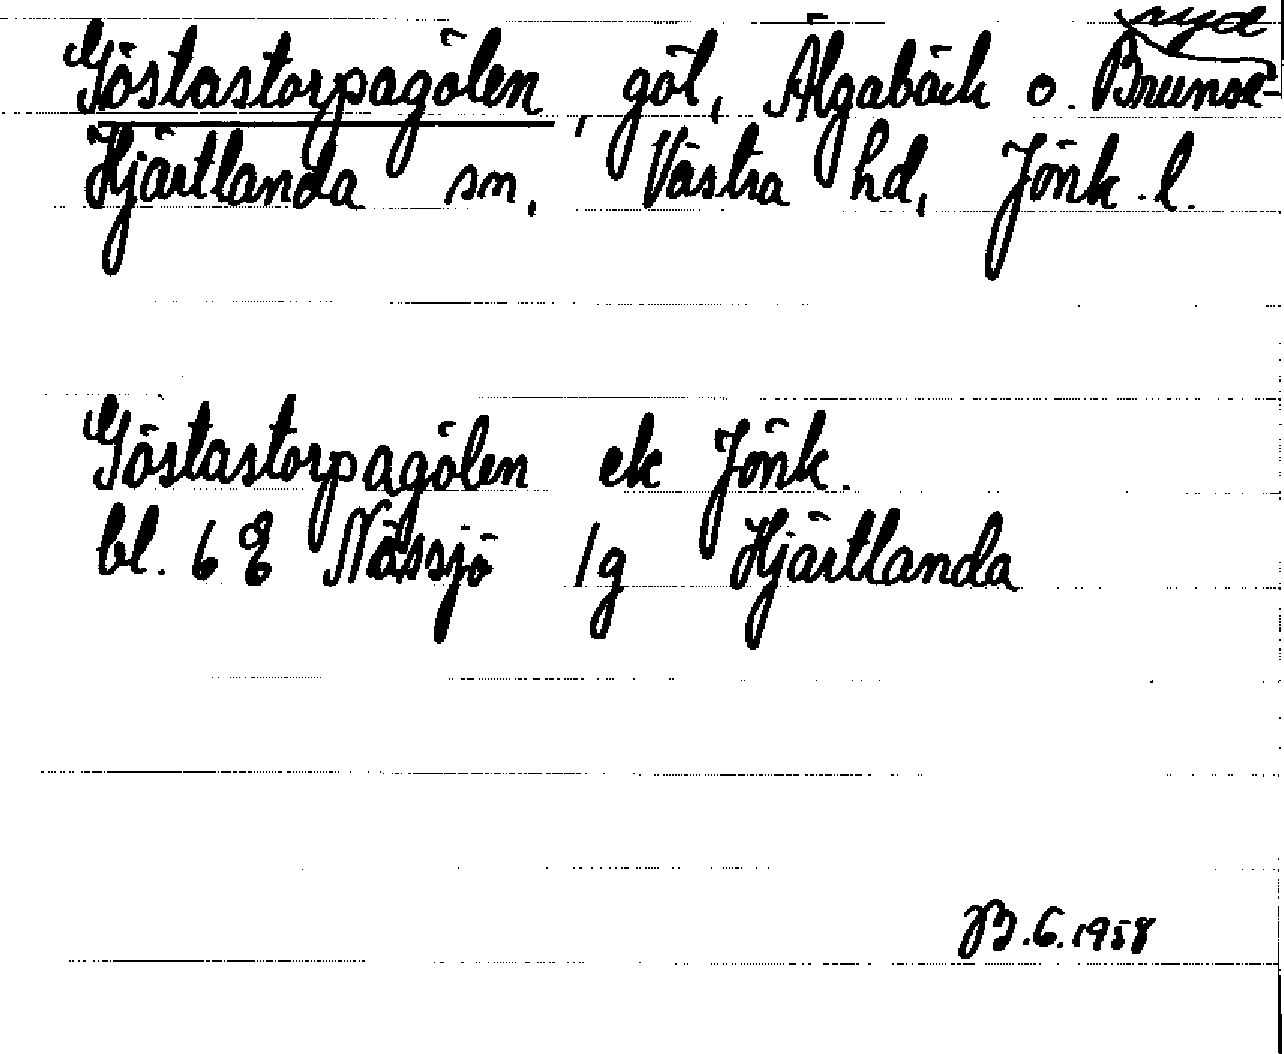 Göstastorpagölen, göl, Älgabäck o. Brunse-ryd
Hjärtlanda sn, Västra hd, Jönk. l.
Göstastorpagölen ek Jönk.
bl. 6 E Nässjö 1g Hjärtlanda
B.G. 1958